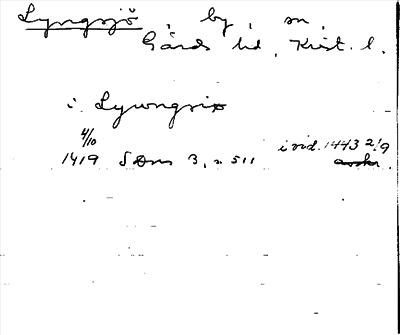 Lyngsjö, by, sn,
Gärds hd, Krist. l.
i Lywngsiø
4/10
1419 SDns 3, n. 511 i vid. 1443 21/9
avskr.